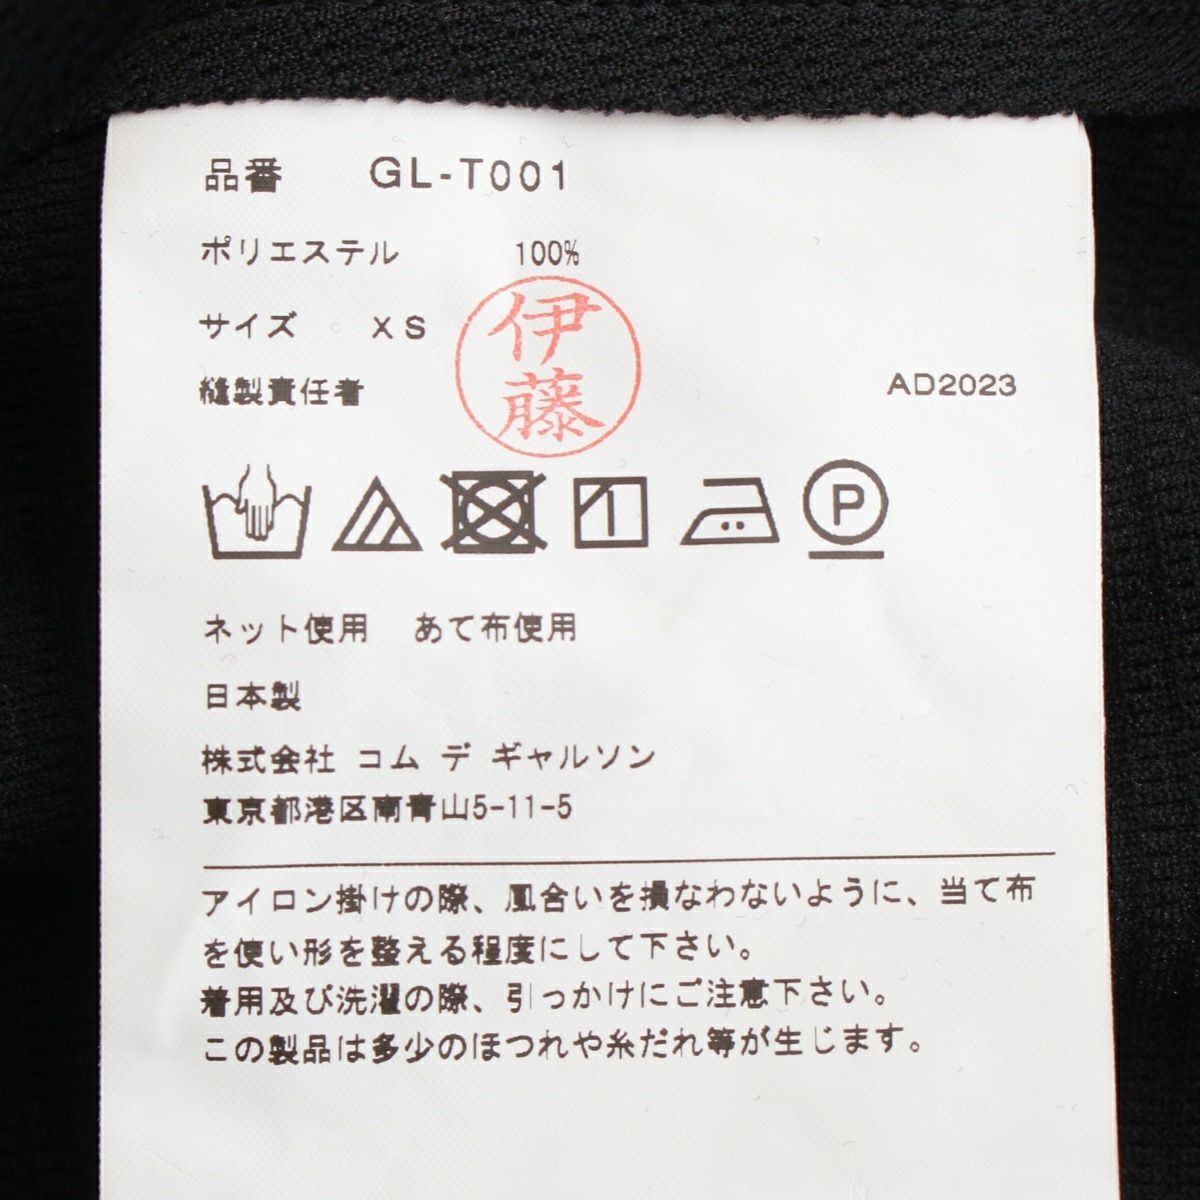 品番 GL-T001
ポリエステル 100%
サイズ XS
伊藤
縫製責任者 AD2023
P
ネット使用 あて布使用
日本製
株式会社 コム デ ギャルソン
東京都港区南青山5-11-5
アイロン掛けの際、風合いを損なわないように、当て布
を使い形を整える程度にして下さい。
着用及び洗濯の際、引っかけにご注意下さい。
この製品は多少のほつれや糸だれ等が生じます。